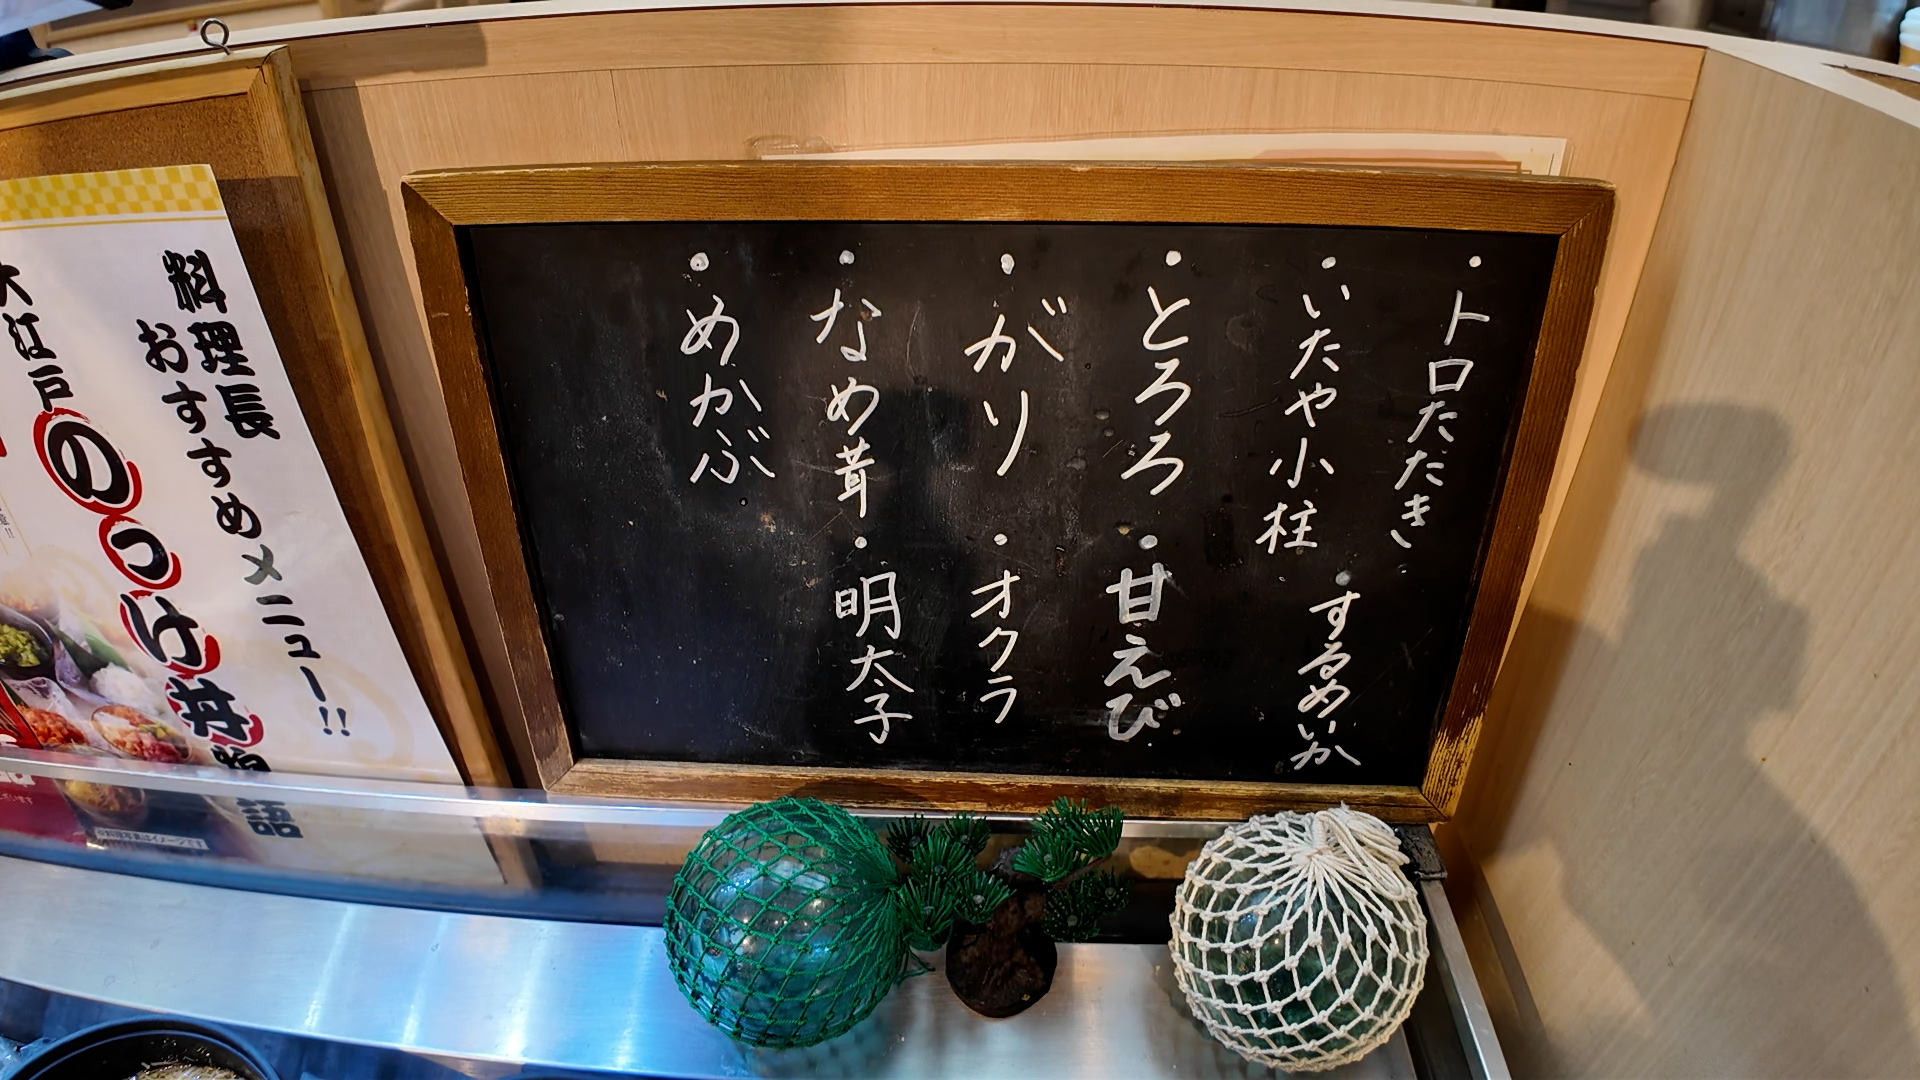 ・トロたたき
・いたや小柱 ・するめいか
・とろろ ・甘えび
・がり ・オクラ
・なめ茸 ・明太子
・めかぶ
料理長
おすすめメニュー!!
大江戸のっけ丼